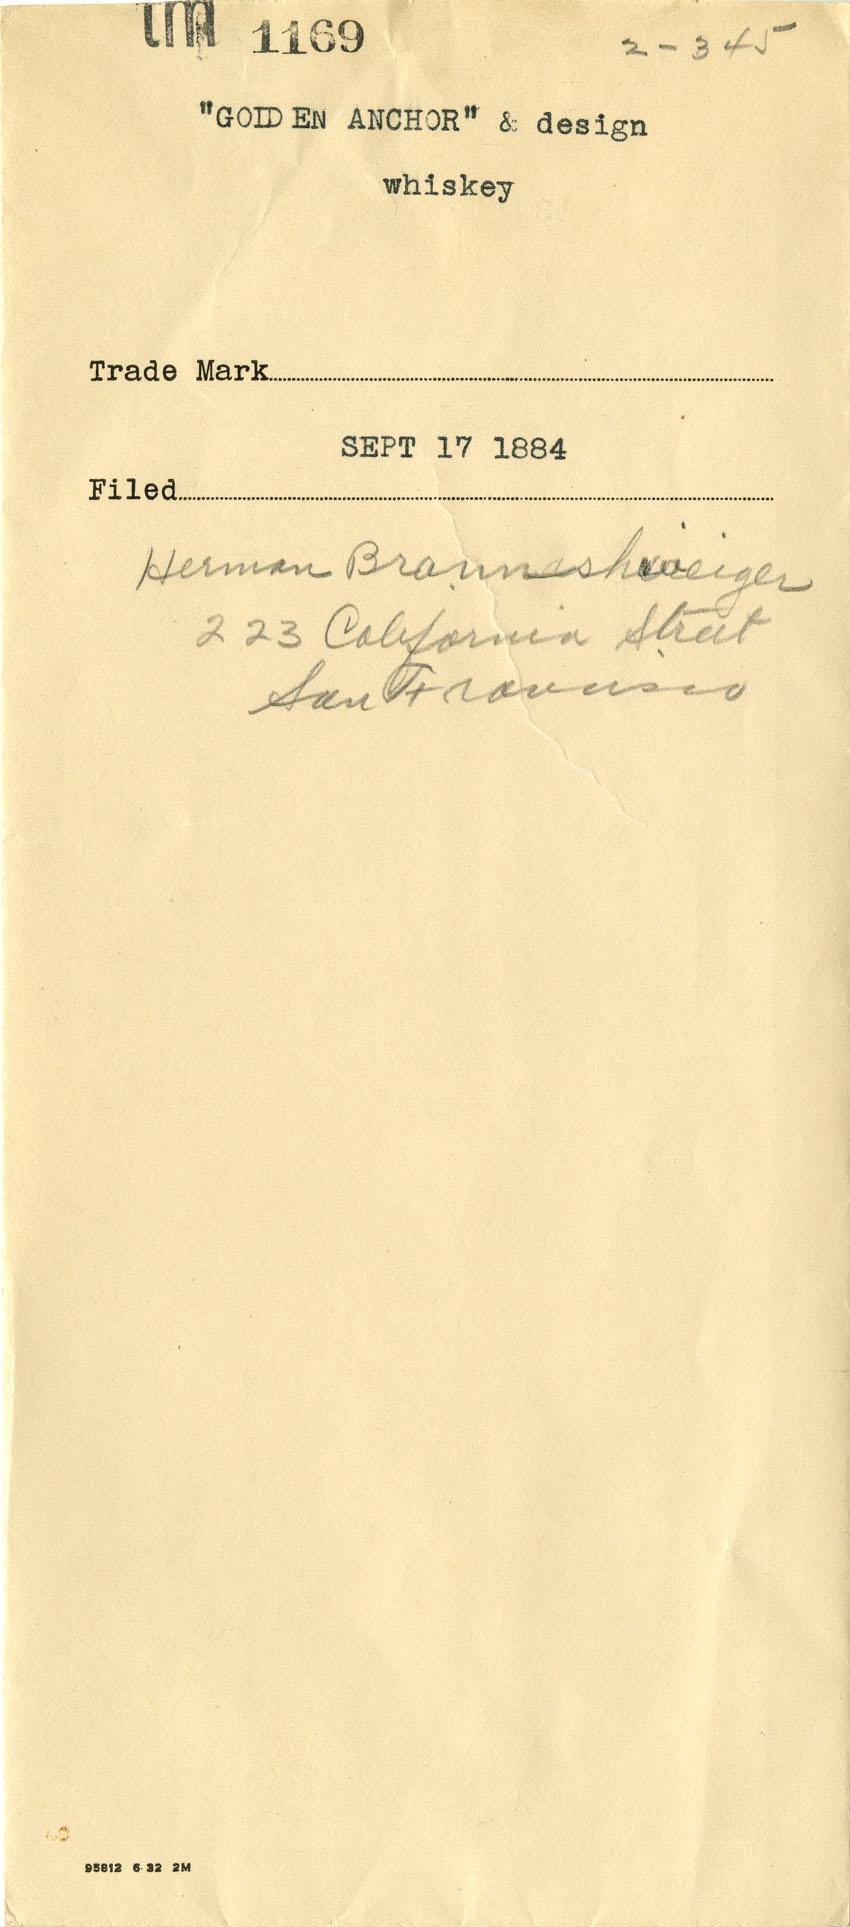 1169 2-345
"GOLDEN ANCHOR" & design
whiskey
Trade Mark
SEPT 17 1884
Filed
Herman Brannshweiger
223 California Street
San Francisco
95812 6-32 2M